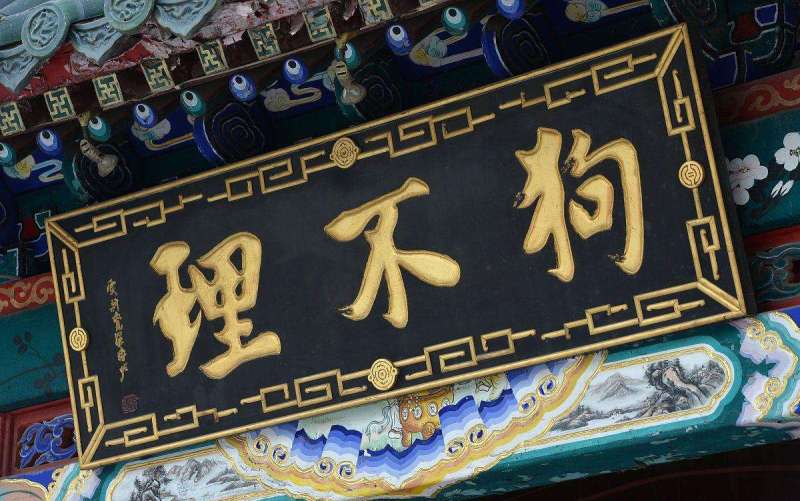 狗不理